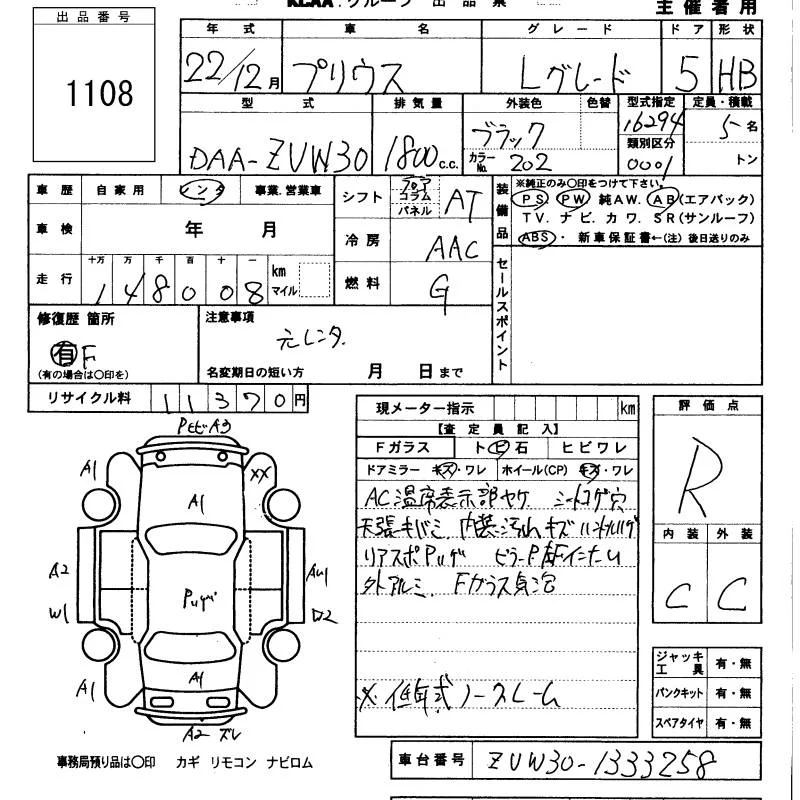 KCAA.グループ 出品票
主催者用
出品番号
1108
年式 車名 グレード ドア 形状
22/12月 プリウス Lグレード 5 HB
型式 排気量 外装色 色替 型式指定 定員・積載
DAA-ZVW30 1800c.c. ブラック 16294 5名
カラーNo. 202 類別区分 0001 トン
車歴 自家用 レンタ 事業.営業車
車検 年 月
走行 十万 万 千 百 十 一 km マイル
148008
シフト フロア コラム パネル AT
冷房 AAC
燃料 G
装備品
※純正のみ○印をつけて下さい。
PS PW 純AW. AB(エアバック)
TV. ナビ. カワ. SR(サンルーフ)
ABS. 新車保証書←(注)後日送りのみ
セールスポイント
修復歴 箇所
有 F
(有の場合は○印を)
注意事項
元レンタ.
名変期日の短い方 月 日まで
リサイクル料 11370円
現メーター指示 km
【査定員記入】
Fガラス トビ石 ヒビワレ
ドアミラー キズ・ワレ ホイール(CP) キズ・ワレ
AC温席表示部ヤケ シートコゲ穴
天張キバミ 内装汚れキズ
外アルミ Fガラス気泡
※低年式ノークレーム
評価点
R
内装 外装
C C
ジャッキ工具 有・無
パンクキット 有・無
スペアタイヤ 有・無
車台番号 ZVW30-1333258
A1
XX
A1
A2
W1
A1
A1
A2 ズレ
事務局預り品は○印 カギ リモコン ナビロム